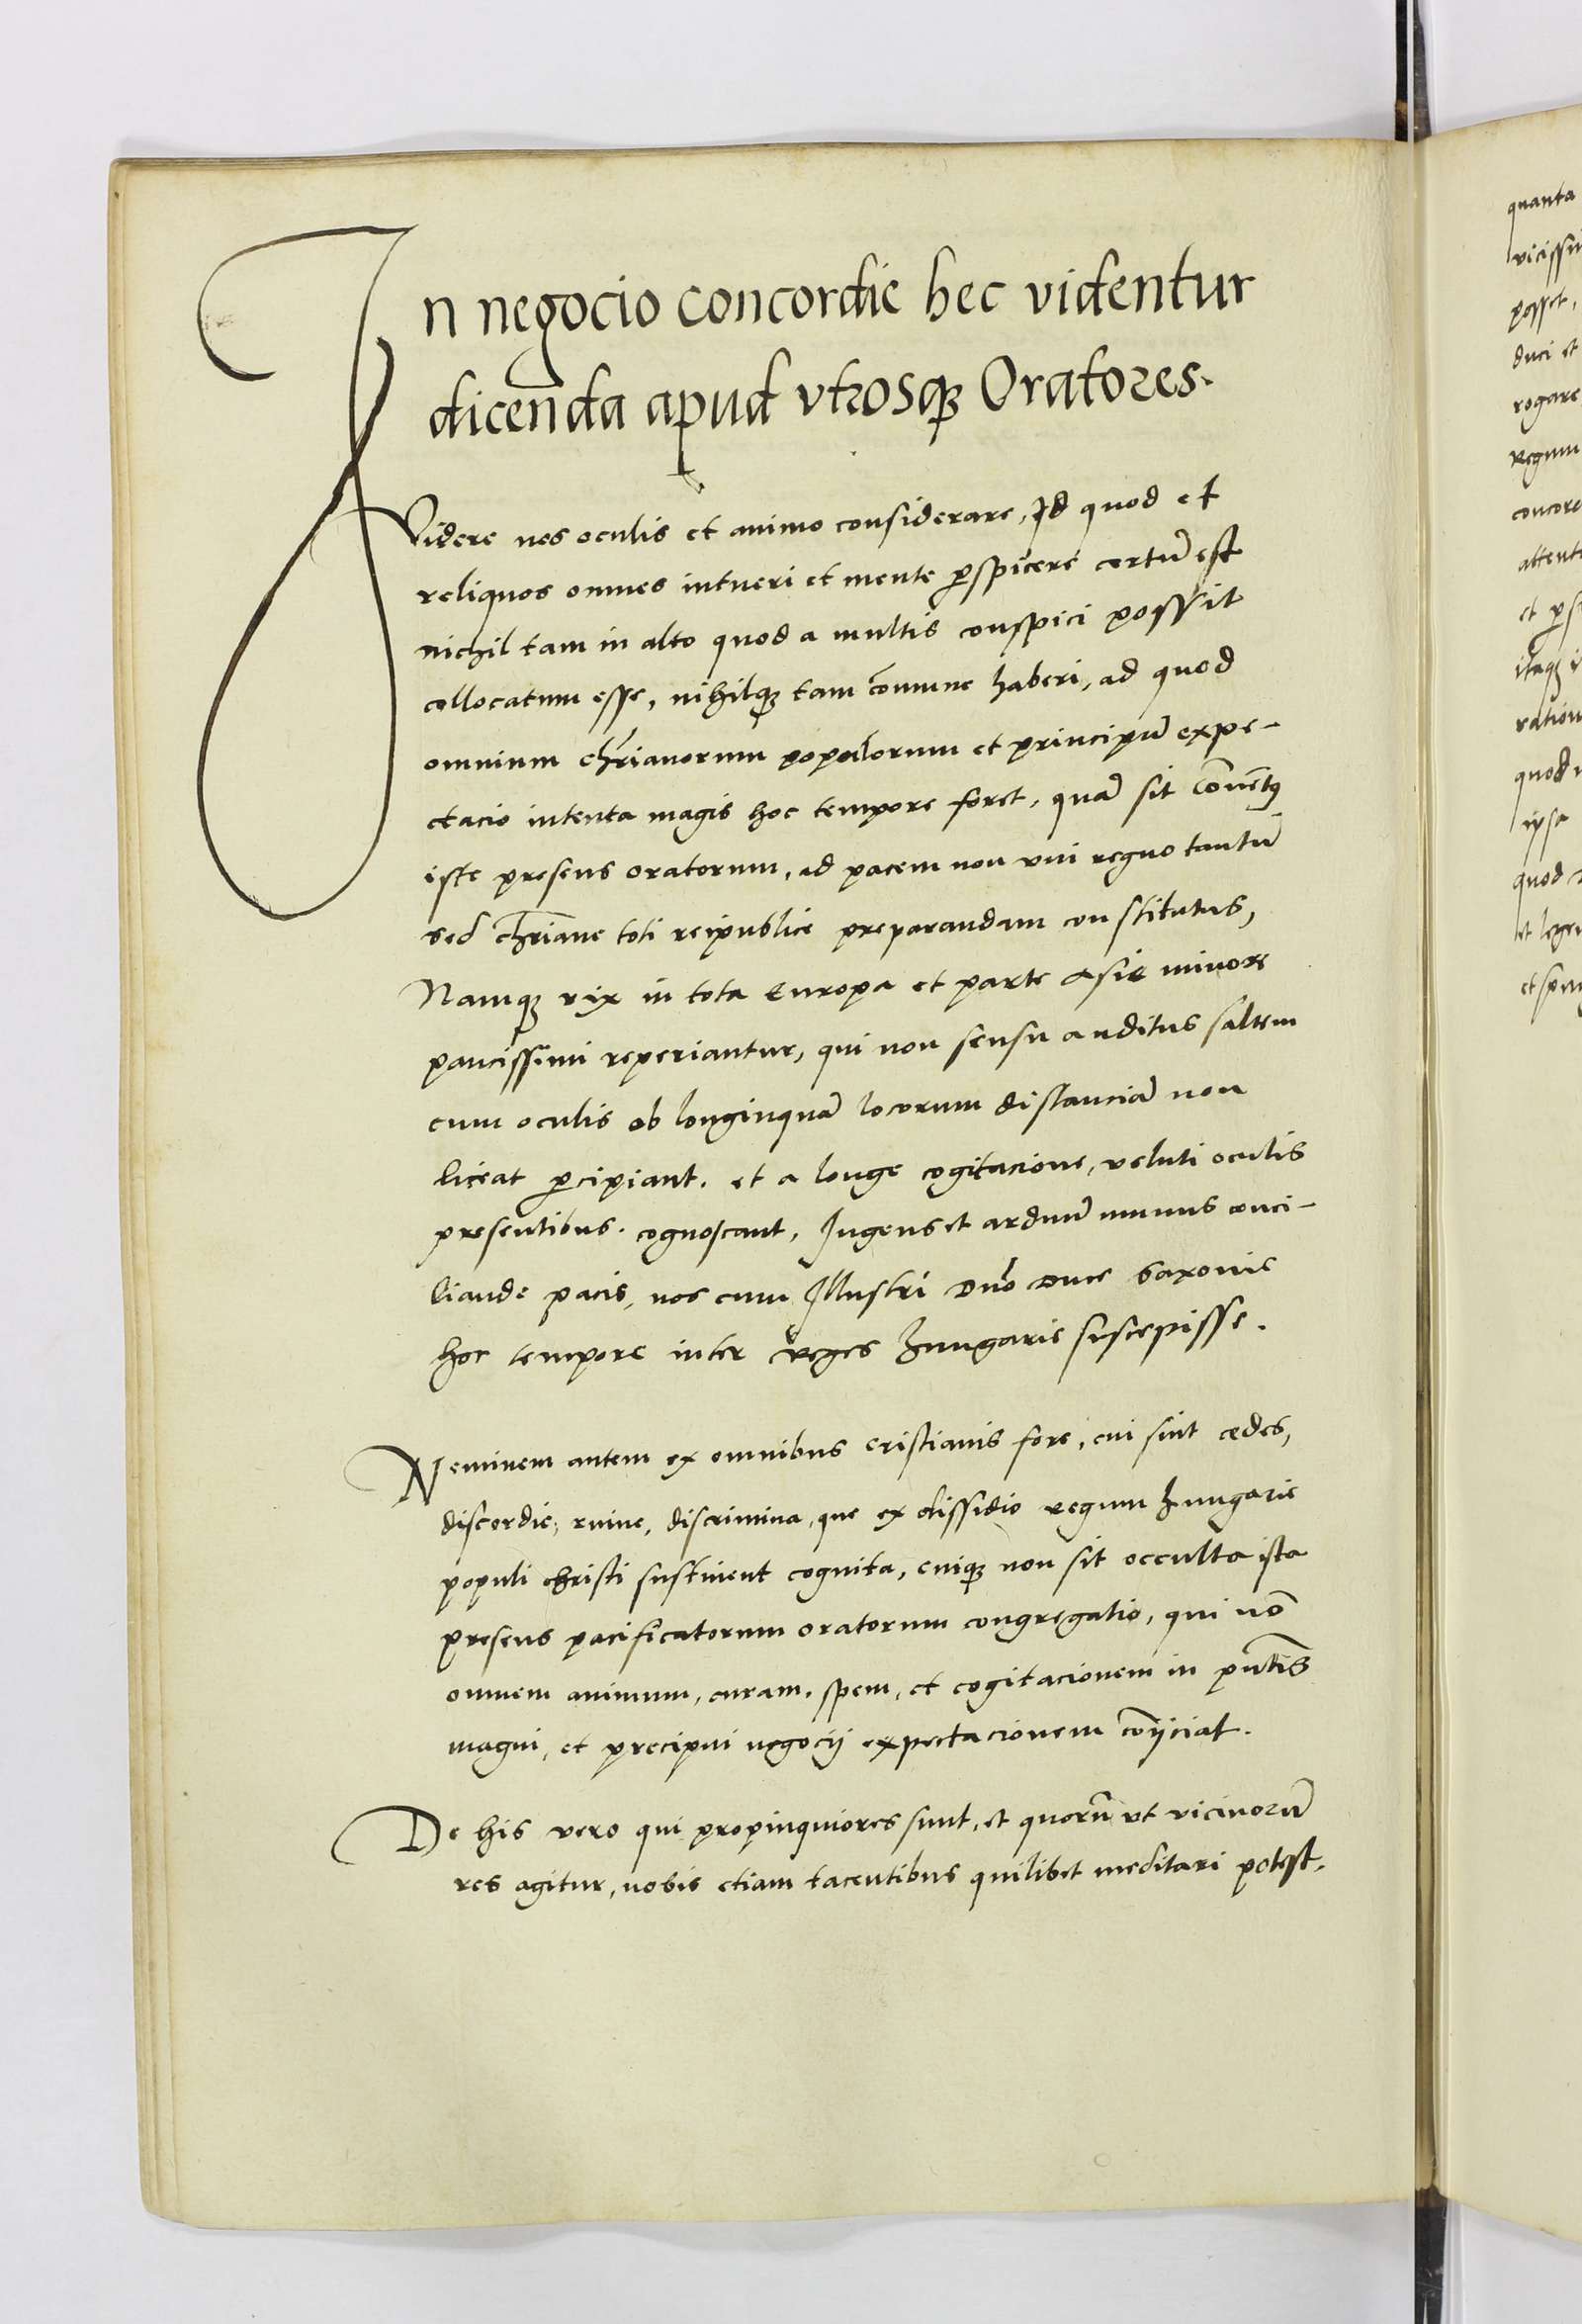 In negocio concordie hec videntur
dicenda apud vtrosqȝ Oratores.
Videre nos oculis et animo considerare, Id quod et
reliquos omnes intueri et mente ꝑspicere certū est
nichil tam in alto quod a multis conspici possit
collocatum esse, nihilqȝ tam cōmune haberi, ad quod
omnium chr̄ianorum populorum et principū expe-
ctacio intenta magis hoc tempore foret, quā sit Conuētꝰ
iste presens oratorum, ad pacem non vni regno tantū
sed chr̄iane toti reipublice preparandam constitutus,
Namqȝ vix in tota Europa et parte Asie minore
paucissimi reperiantur, qui non sensu auditus saltem
cum oculis ob longinquā locorum distanciā non
liceat ꝑcipiant. et a longe cogitacione, veluti oculis
presentibus. cognoscant, Ingens et arduū munus conci-
liande pacis, nos cum Illustri Dn̄o Duce Saxonie
hoc tempore inter reges Hungarie suscepisse.
Neminem autem ex omnibus cristianis fore, cui sint cedes,
discordie, ruine, discrimina, que ex dissidio regum Hungarie
populi christi sustinent cognita, cuiqȝ non sit occulta ista
presens pacificatorum oratorum congregatio, qui nō
omnem animum, curam, spem, et cogitacionem in pn̄tis
magni, et precipui negocij expectacionem cōijciat.
De his vero qui propinquiores sunt, et quorū vt vicinorū
res agitur, nobis etiam tacentibus quilibet meditari potest.
quanta
posset,
duci et
rogare
Regum
quod
ipsa
quod